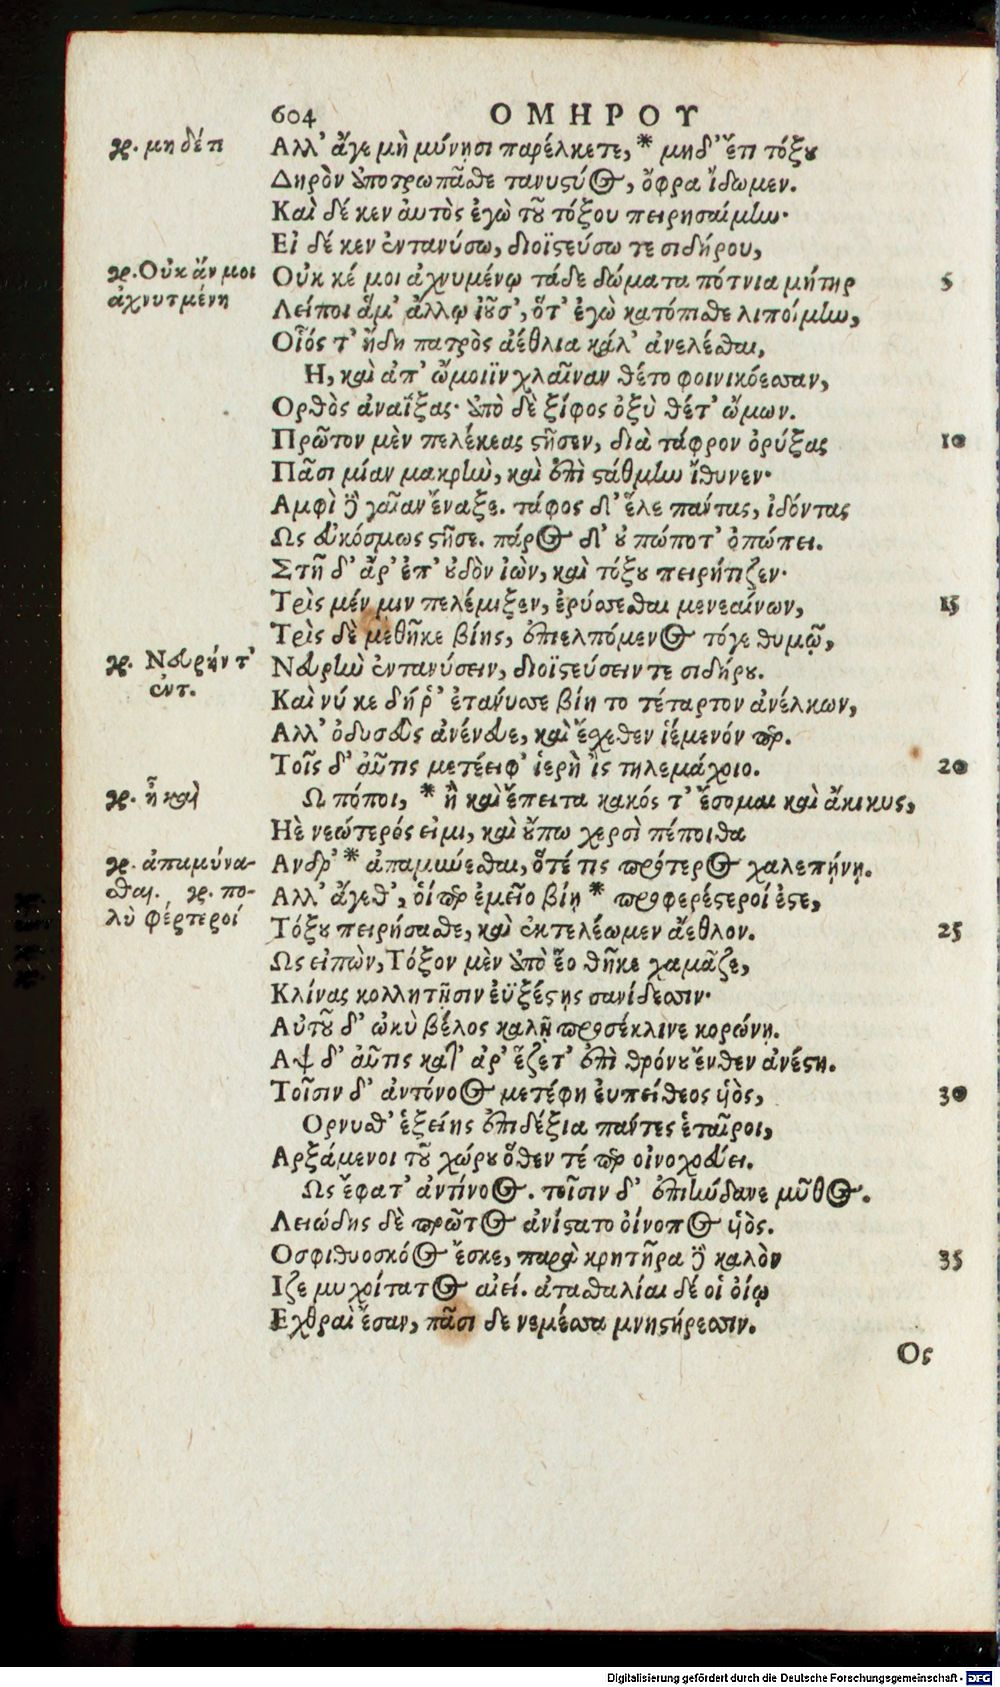 604 ΟΜΗΡΟΥ
γρ. μηδέ τι
Αλλ' ἄγε μὴ μύνῃσι παρέλκετε, * μηδ' ἔτι τόξου
Δηρὸν ὑποτρωπᾶσθε τανυστύος, ὄφρα ἴδωμεν.
Καὶ δέ κεν ἀυτὸς ἐγὼ τοῦ τόξου πειρησαίμην·
Εἰ δέ κεν ἐντανύσω, διοϊστεύσω τε σιδήρου,
γρ. Οὐκ ἄν μοι
ἀχνυτμένη
Οὐκ κέ μοι ἀχνυμένῳ τάδε δώματα πότνια μήτηρ 5
Λείποι ἅμ' ἄλλῳ ἰοῦσ', ὅτ' ἐγὼ κατόπισθε λιποίμην,
Οἷός τ' ἤδη πατρὸς ἀέθλια κάλ' ἀνελέσθαι,
Η, καὶ ἀπ' ὤμοιϊν χλαῖναν θέτο φοινικόεσσαν,
Ορθὸς ἀναΐξας· ὑπὸ δὲ ξίφος ὀξὺ θέτ' ὤμων.
Πρῶτον μὲν πελέκεας στῆσεν, διὰ τάφρον ὀρύξας 10
Πᾶσι μίαν μακρὴν, καὶ ἐπὶ στάθμην ἴθυνεν·
Αμφὶ δὲ γαῖαν ἔναξε. τάφος δ' ἕλε πάντας, ἰδόντας
Ως εὐκόσμως στῆσε. πάρος δ' οὐ πώποτ' ὀπώπει.
Στῆ δ' ἄρ' ἐπ' οὐδὸν ἰὼν, καὶ τόξου πειρήτιζεν·
Τρὶς μέν μιν πελέμιξεν, ἐρύσσεσθαι μενεαίνων, 15
Τρὶς δὲ μεθῆκε βίης, ἐπιελπόμενος τόγε θυμῷ,
γρ. Νευρήν τ'
ἐντ.
Νευρὴν ἐντανύσειν, διοϊστεύσειν τε σιδήρου.
Καὶ νύ κε δή ῥ' ἐτάνυσσε βίῃ το τέταρτον ἀνέλκων,
Αλλ' ὀδυσεὺς ἀνένευε, καὶ ἔσχεθεν ἱέμενόν περ.
Τοῖς δ' αὖτις μετέειφ' ἱερὴ ἲς τηλεμάχοιο. 20
γρ. ἦ καὶ
Ω πόποι, * ἢ καὶ ἔπειτα κακός τ' ἔσομαι καὶ ἄκικυς,
Ηὲ νεώτερός εἰμι, καὶ οὔπω χερσὶ πέποιθα
γρ. ἀπαμύνασθαι.
Ανδρ' * ἀπαμμύεσθαι, ὅτέ τις πρότερος χαλεπήνῃ.
γρ. πολὺ φέρτεροί
Αλλ' ἄγεθ', οἱ περ ἐμεῖο βίῃ * προφερέστεροί ἐστε,
Τόξου πειρήσασθε, καὶ ἐκτελέωμεν ἄεθλον. 25
Ως εἰπὼν, Τόξον μὲν ὑπὸ ἕο θῆκε χαμᾶζε,
Κλίνας κολλητῆσιν ἐϋξέστης σανίδεσσιν·
Αὐτοῦ δ' ὠκὺ βέλος καλῇ προσέκλινε κορώνῃ.
Αψ δ' αὖτις κατ' ἀρ' ἕζετ' ἐπὶ θρόνου ἔνθεν ἀνέστη.
Τοῖσιν δ' ἀντόνοος μετέφη ἐυπείθεος υἱὸς, 30
Ορνυσθ' ἑξείης ἐπιδέξια πάντες ἑταῖροι,
Αρξάμενοι τοῦ χώρου ὅθεν τέ περ οἰνοχοεύει.
Ως ἔφατ' ἀντίνοος. τοῖσιν δ' ἐπιήνδανε μῦθος.
Λειώδης δὲ πρῶτος ἀνίστατο ὀίνοπος υἱὸς.
Οσφιθυοσκόος ἔσκε, παρὰ κρητῆρα δὲ καλὸν 35
Ιζε μυχοίτατος αἰεί. ἀτασθαλίαι δέ οἱ ὀίῳ
Εχθραὶ ἔσαν, πᾶσι δε νεμέσσα μνηστήρεσσιν.
Ος
Digitalisierung gefördert durch die Deutsche Forschungsgemeinschaft - DFG